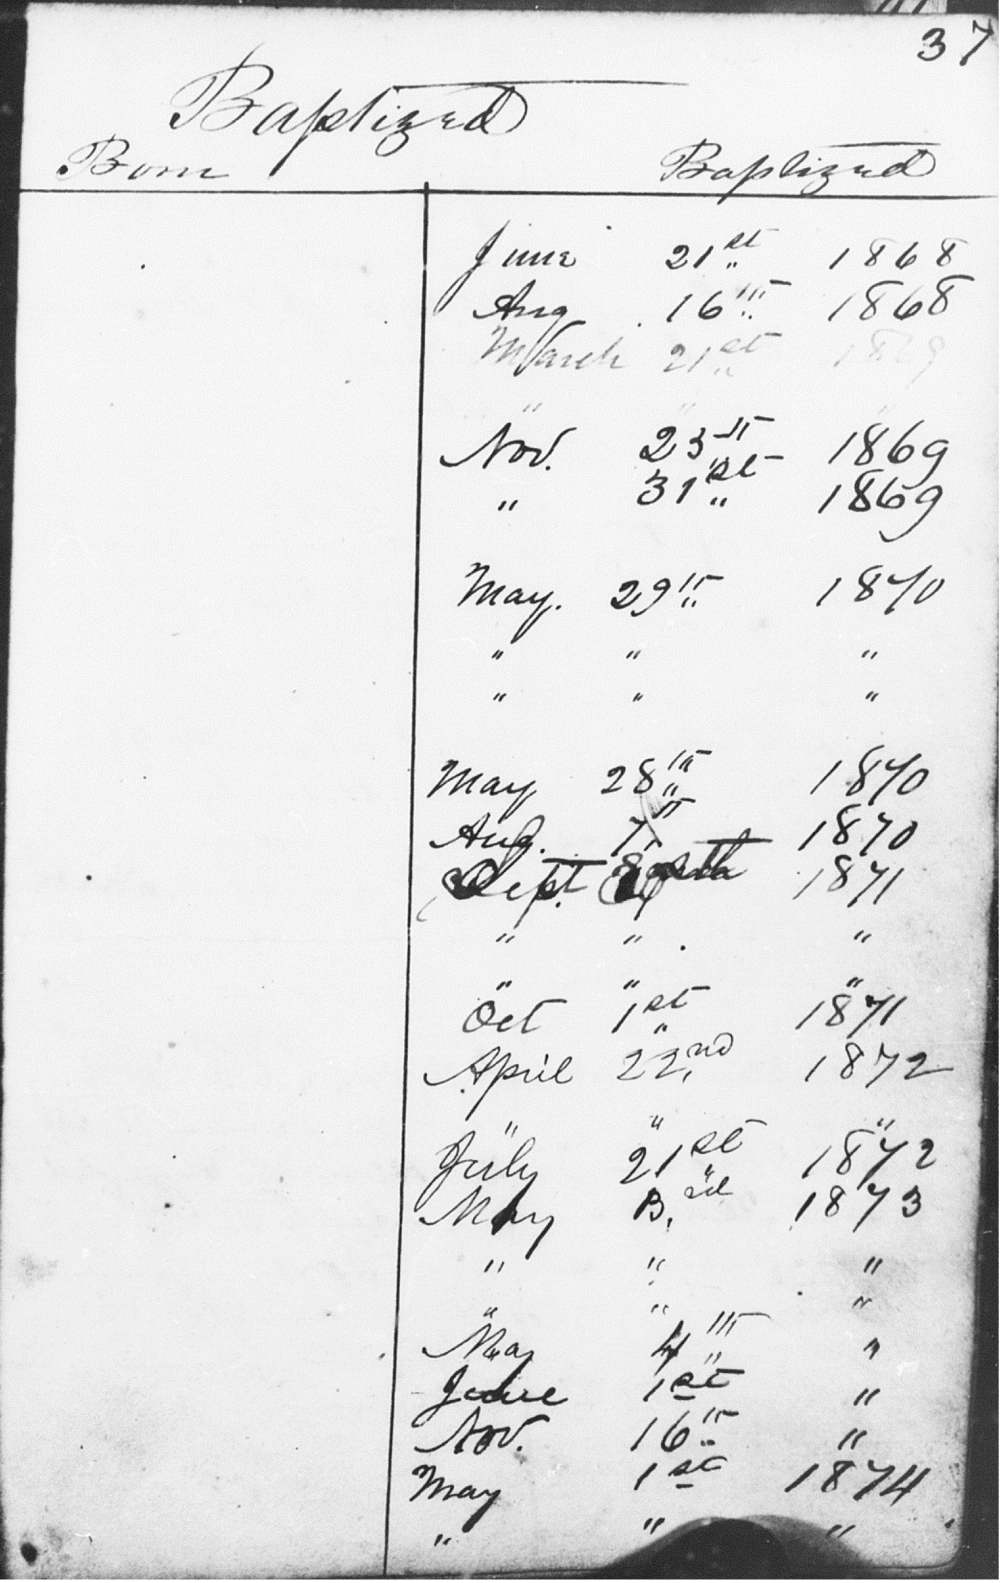 37
Baptized
Born Baptized
June 21st 1868
Aug 16th 1868
March 21st
" " "
Nov. 23th 1869
" 31st 1869
May. 29th 1870
" " "
" " "
May 28th 1870
Aug. 7th 1870
Sept. 1871
" " "
" " "
Oct 1st 1871
April 22nd 1872
" " "
July 21st 1872
May 1873
" " "
" " "
May 4th "
June 1st "
Nov. 16th "
May 1st 1874
" " "